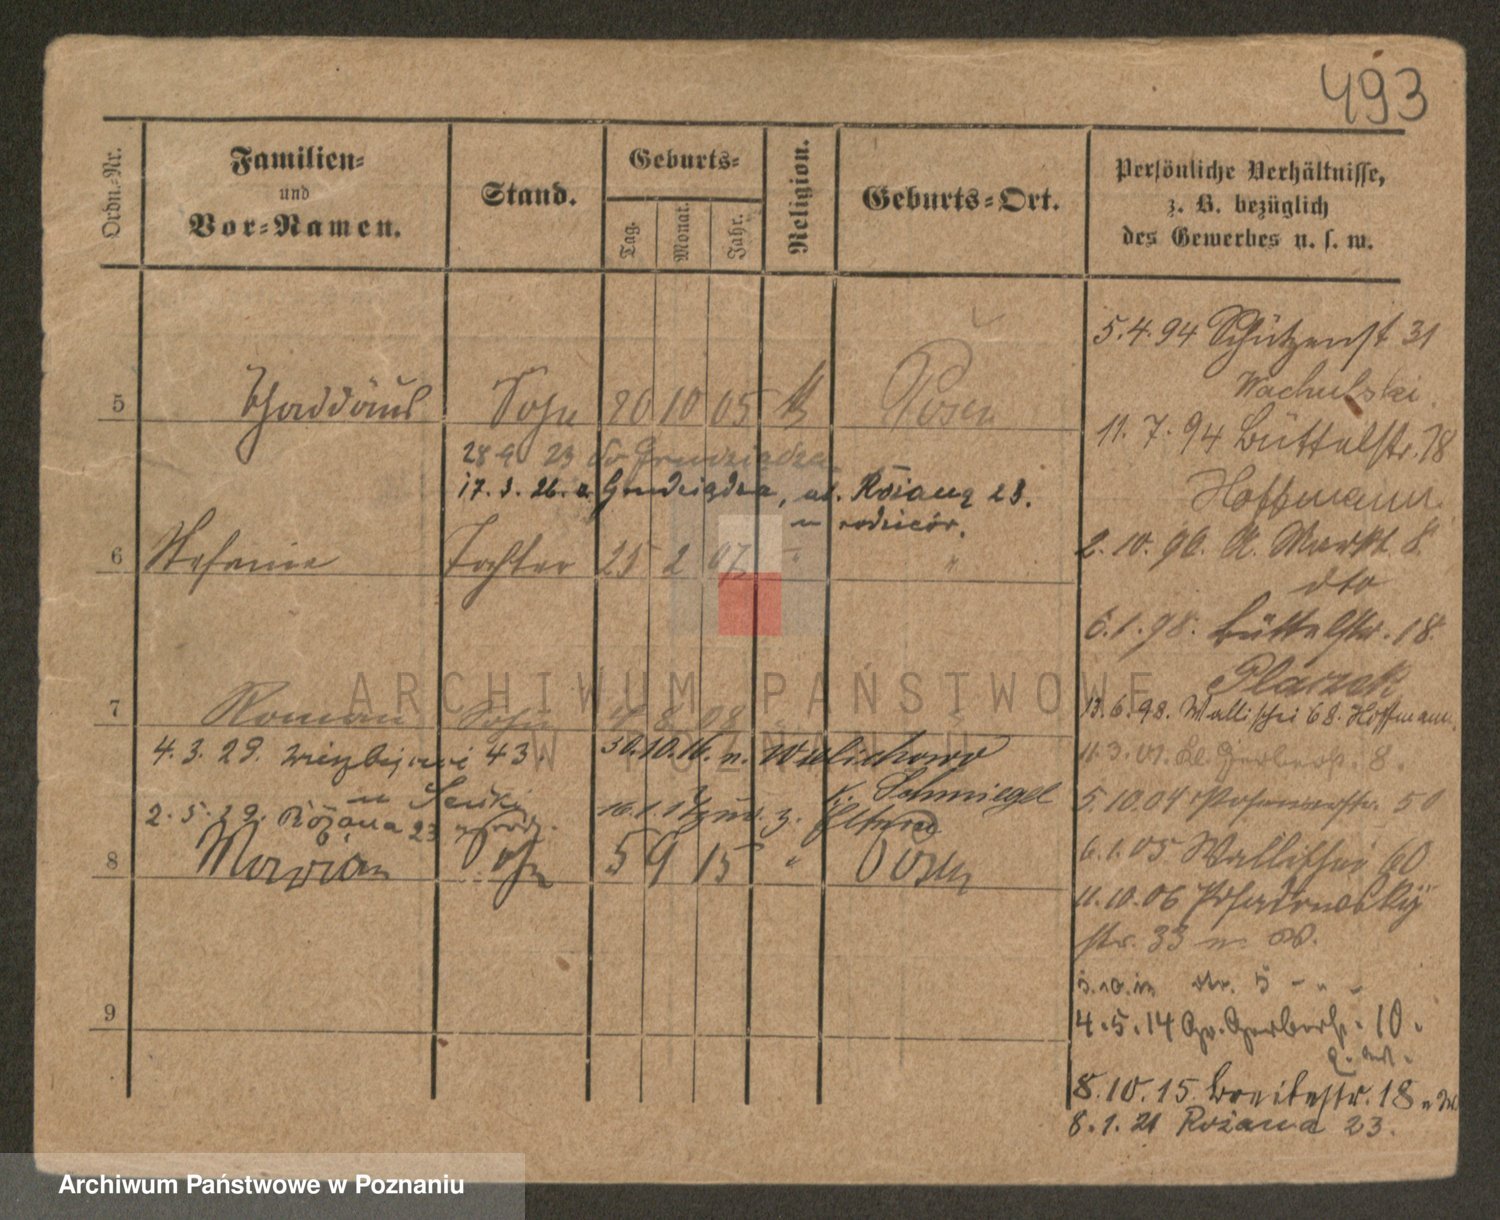 493
Ordn.-Nr.
Familien-
und
Vor-Namen.
Stand.
Geburts-
Tag.
Monat.
Jahr.
Religion.
Geburts-Ort.
Persönliche Verhältnisse,
z. B. bezüglich
des Gewerbes u. s. w.
5.4.94 Schützenst 31
Wachulski.
5 Thaddäus Sohn 20 10 05 Posen
11. 7. 94 Büttelstr. 18
Hoffmann.
28 9 23 do Grudziądza
17. 3. 26. a. Grudziądza, ul. Różana 23.
u rodziców.
2. 10. 96. A. Markt 8.
6 Stefanie Tochter 25 2 07 "
dto
6.1.98. Büttelstr. 18.
Placzek
7 Roman Sohn 4 8 08 "
13.6.98. Wallischei 68. Hoffmann.
4. 3. 29. 43. 30.10.16. n. Wielichowo
11.3.01. Kl. Gerberst. 8.
u
K. Schmiegel
5.10.04 50
2. 5. 29. Różana 23 16.1.17 z. Eltern
8 Maryian Sohn 5 9 15 " Posen
6.1.05 Wallischei 60
11.10.06 Posadowsky
str. 33
str. 5 - " -
9
4.5.14 Gr. Gerberst. 10.
8.10.15. Breitestr. 18
8.1.21 Różana 23.
ARCHIWUM PAŃSTWOWE
W POZNANIU
Archiwum Państwowe w Poznaniu